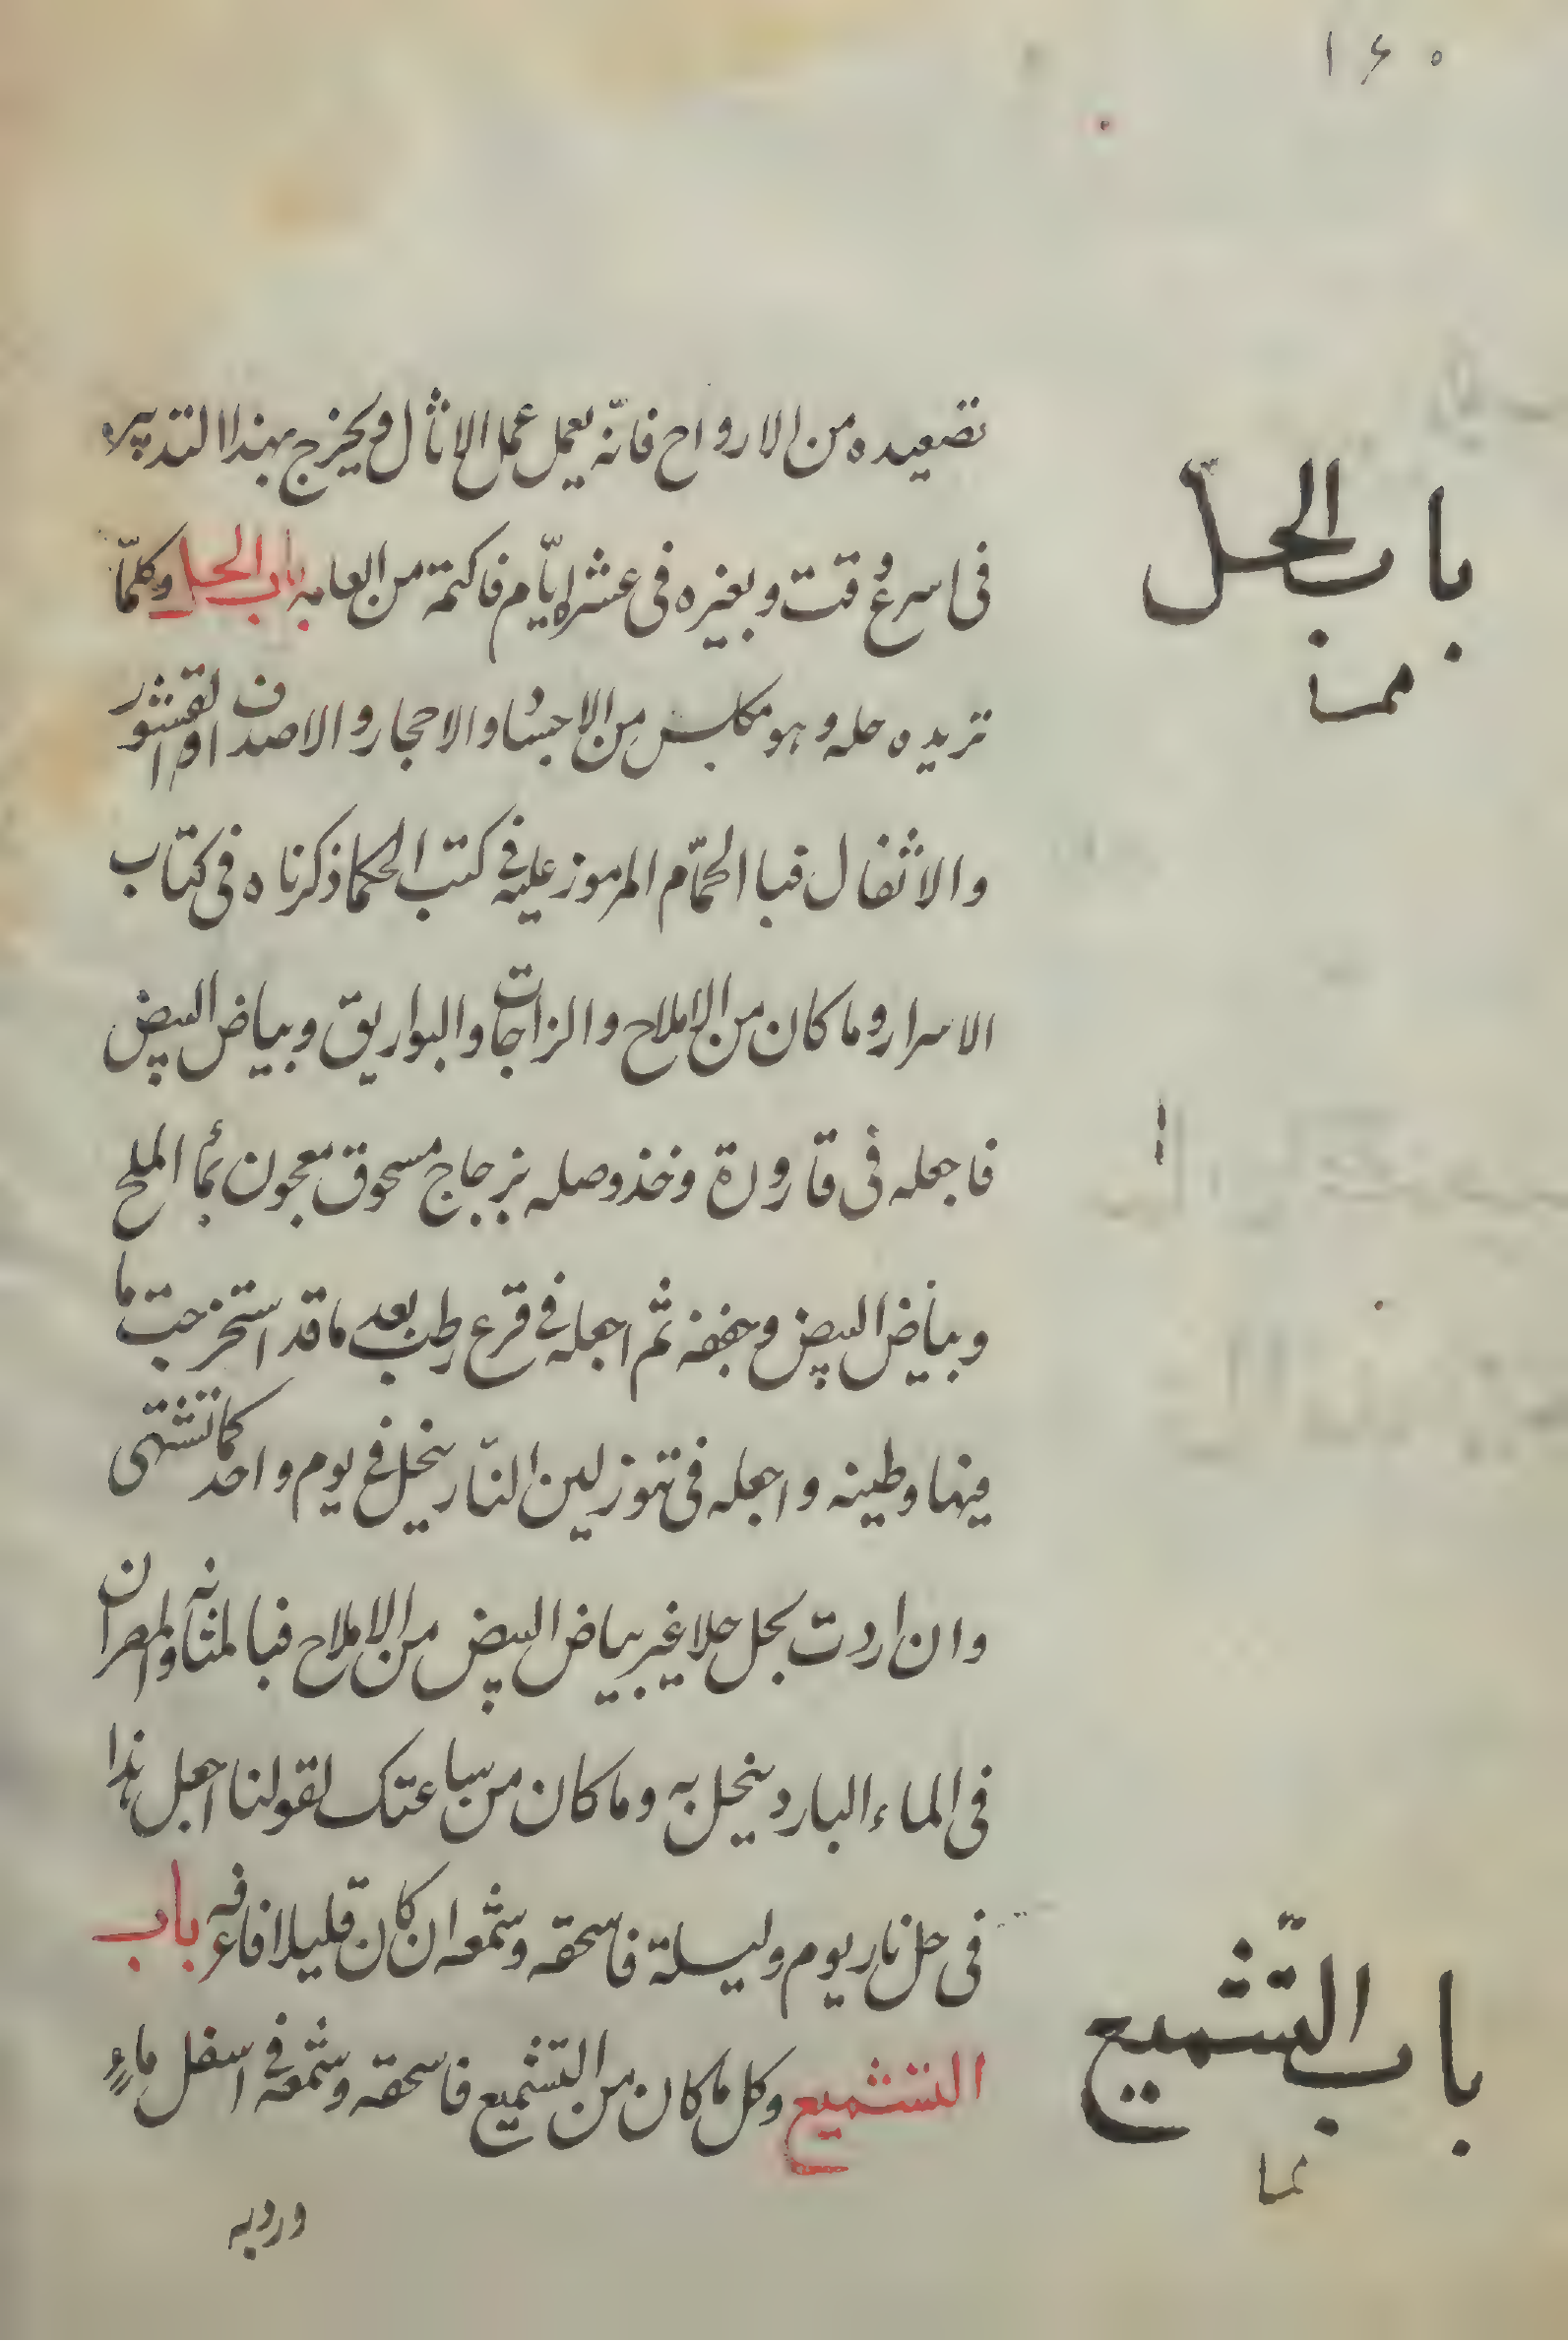 ۱۶۰
تصعيده من الارواح فانّه يعمل عمل الاثال ويخرج بهذا التدبير
فى اسرع وقت وبغيره فى عشرة ايّام فاكتمه من العامه باب الحل وكلمّا
تريده حله وهو مكلس من الاجساد والاحجار والاصداف والقشور
والاثفال فبا الحمّام المرموز عليه فى كتب الحكما ذكرناه فى كتاب
الاسرار وما كان من الاملاح والزاجات والبواريق وبياض البيض
فاجعله فى قارورة وخذ وصله بزجاج مسحوق معجون بمأ الملح
وبياض البيض وجففه ثم اجعله فى قرع رطب بعد ما قد استخرجت ما
فيها وطينه واجعله فى تنور لين النّار ينحل فى يوم واحد كما تشتهى
وان اردت بحل حلا غير بياض البيض من الاملاح فبا لمثانه والمصران
فى الماء البارد ينحل به وما كان من ساعتك لقولنا اجعل هذا
فى حل نار يوم وليلة فاسحقه وشمعه ان كان قليلا فاعرفه باب
التشميع وكل ما كان من التشميع فاسحقه وشمعه فى اسفل ماءٍ
وردبه
باب الحلّ
باب التّشميع